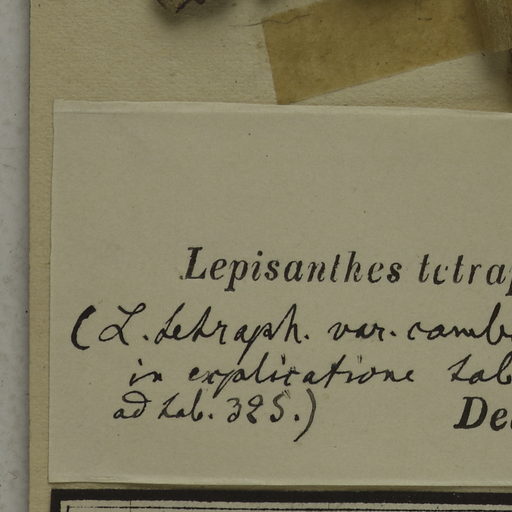 Lepisanthes tetrap
(L. tetraph. var. camb
in explicatione tab
ad tab. 325.)
De